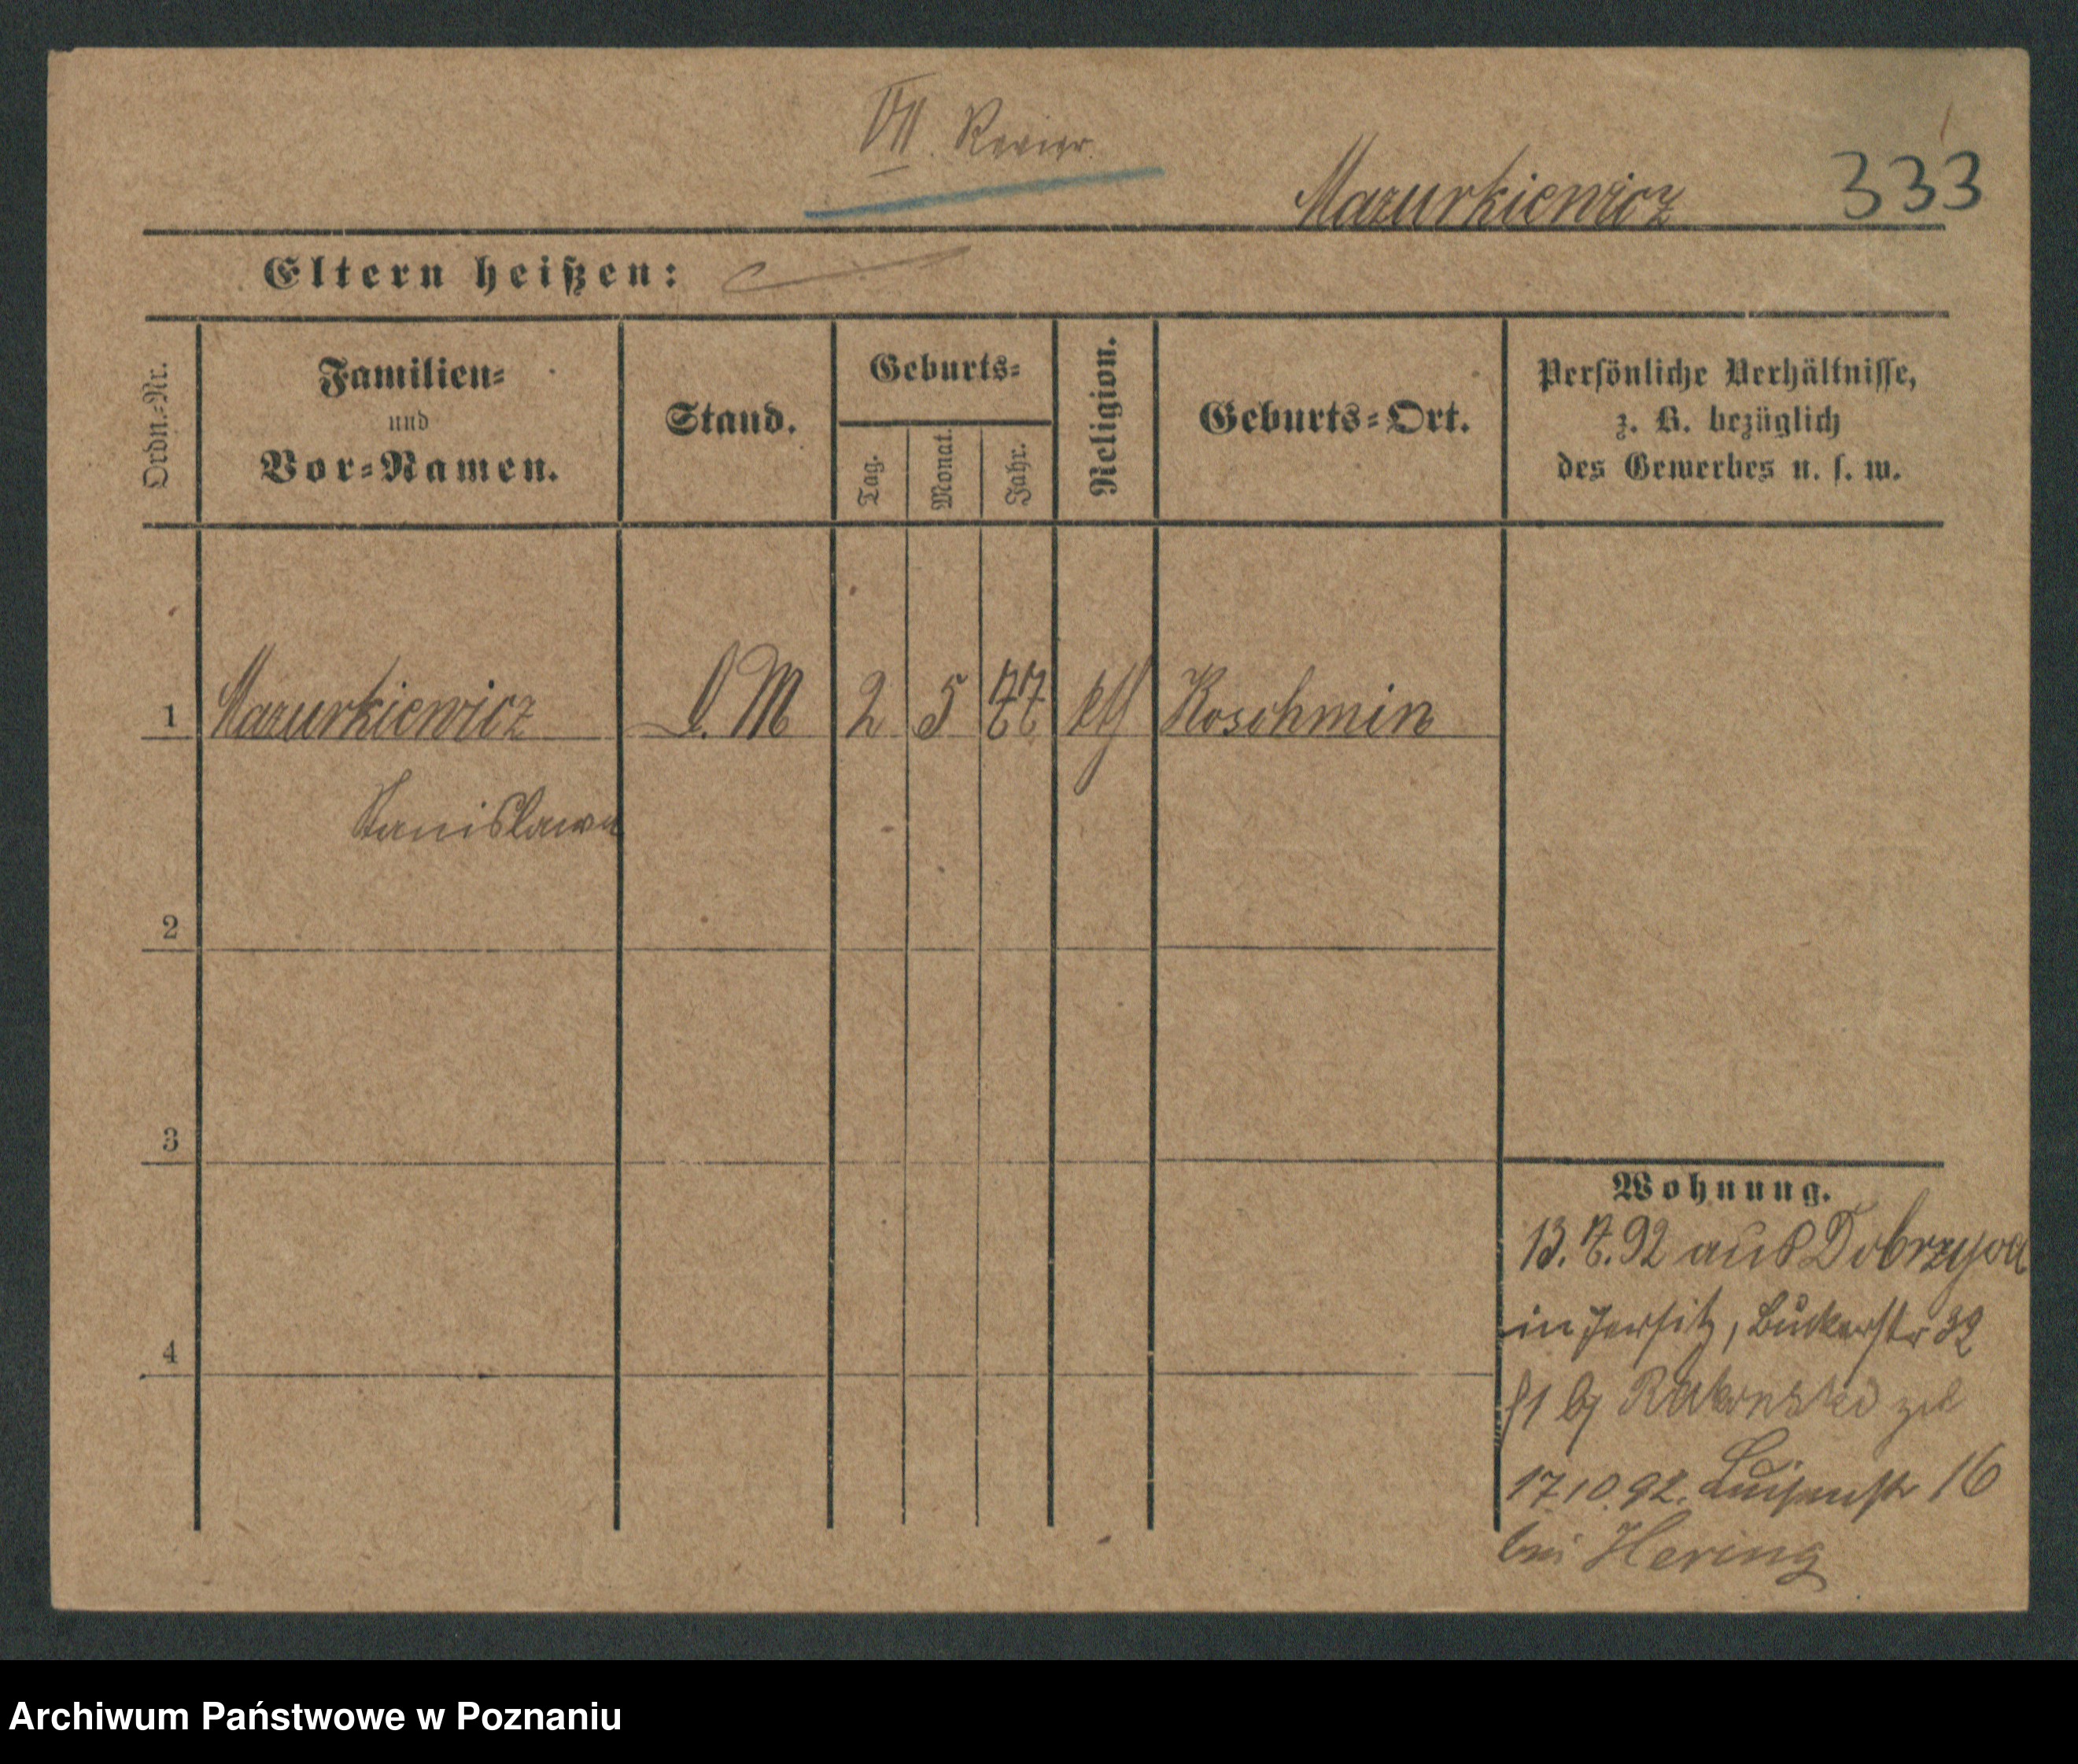 VII. Revier.
Mazurkiewicz 333
Eltern heißen:
Ordn.-Nr.
Familien-
und
Vor-Namen.
Stand.
Geburts-
Tag.
Monat.
Jahr.
Religion.
Geburts-Ort.
Persönliche Verhältnisse,
z. B. bezüglich
des Gewerbes u. s. w.
1 Mazurkiewicz D. M 2 5 77 kth Koschmin
Stanislawa
2
3
4
Wohnung.
13. 7. 92 aus Dobrzyca
in Jersitz, Bukerstr 32
17 10. 92. Luisenstr 16
bei Hering
Archiwum Państwowe w Poznaniu